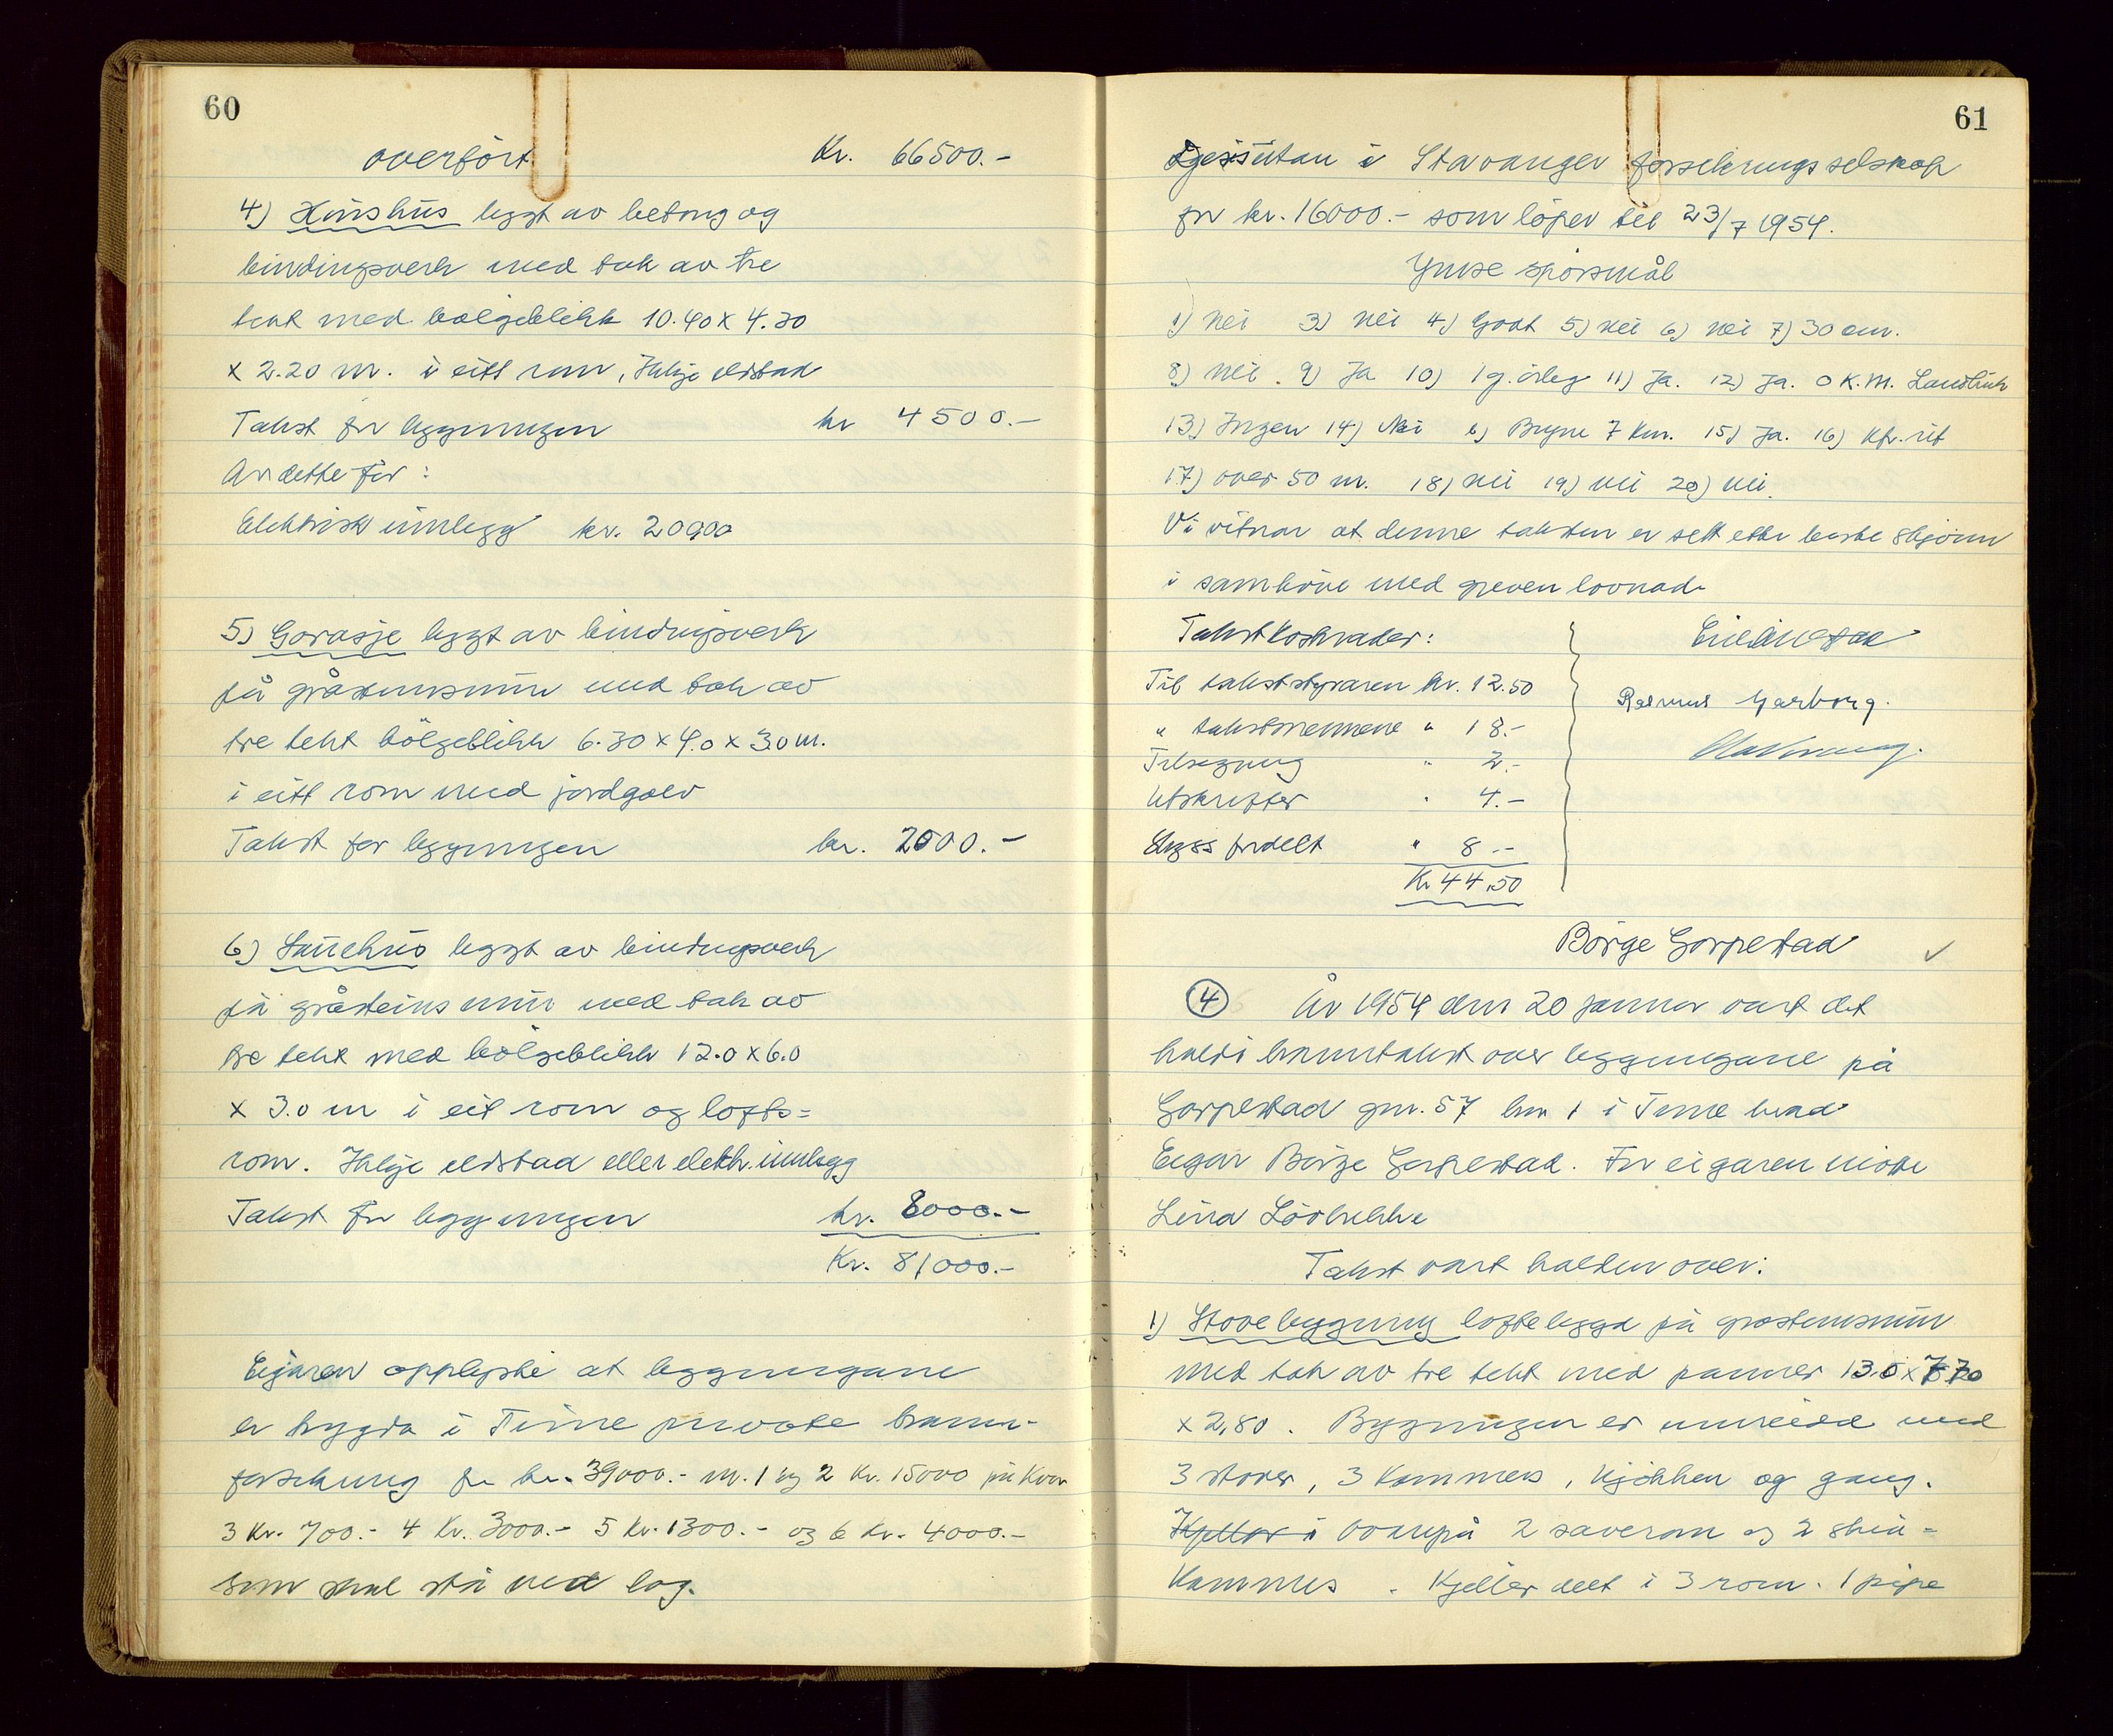 60
overført Kr. 66500.-
4) Hønshus bygt av betong og
bindingsverk med tak av tre
tekt med bølgeblikk 10.40 x 4.30
x 2.20 m. i eitt rom, Ikkje eldstad
Takst for bygningen kr 4500.-
Av dette for:
Elektrisk innlegg kr. 20000
5) Garasje bygt av bindingsverk
på gråsteinsmur med tak av
tre tekt bølgeblikk 6.30 x 4.0 x 3.0 m.
i eitt rom med jordgolv
Takst for bygningen kr. 2000.-
6) bygt av bindingsverk
på gråsteins mur med tak av
tre tekt med bølgeblikk 12.0 x 6.0
x 3.0 m i eit rom og lofts=
rom. Ikkje eldstad eller elektr. innlegg
Takst for bygningen kr. 8000.-
Kr. 81000.-
Eigaren opplyste at bygningane
er trygda i Time private brann-
forsikring for kr. 39000.- nr. 1 og 2 Kr. 15000 på kvar
3 Kr. 700.- 4 Kr. 3000.- 5 Kr. 1300.- og 6 Kr. 4000.-
som skal stå ved lag.
61
Dessutan i Stavanger forsikringsselskap
for kr. 16000.- som løper til 23/7 1954.
Ymse spørsmål
1) Nei 3) Nei 4) Godt 5) Nei 6) Nei 7) 30 cm.
8) Nei. 9) Ja 10) 1 g. årleg 11) Ja. 12) Ja. 0 K.M.
13) Ingen 14) Nei b) Bryne 7 Km. 15) Ja. 16) Kfr. rit
17) over 50 m. 18) Nei 19) Nei 20) Nei.
Vi vitnar at denne taksten er sett etter beste skjønn
i samhøve med greven lovnad.
Takstkostnader:
Til takststyraren kr. 12.50
" takstmennene " 18.- Rasmus Garborg.
Tilsegning " 2.-
Utskrifter " 4.-
Skyss fordelt " 8.-
Kr 44,50
Børge Garpestad ✓
4 År 1954 den 20 januar vart det
halde branntakst over bygningane på
Garpestad gnr. 57 bnr 1 i Time herad
Eigar Børge Garpestad. For eigaren møtte
Lina
Takst vart halden over:
1) Stovebygning loftebygd på gråsteinsmur
med tak av tre tekt med panner 13.0 x 7.70
x 2,80. Bygningen er innreidd med
3 stover, 3 Kammers, kjøkken og gang.
Kjeller i Ovanpå 2 soverom og 2 skrå=
Kammers. Kjeller delt i 3 rom. 1 pipe